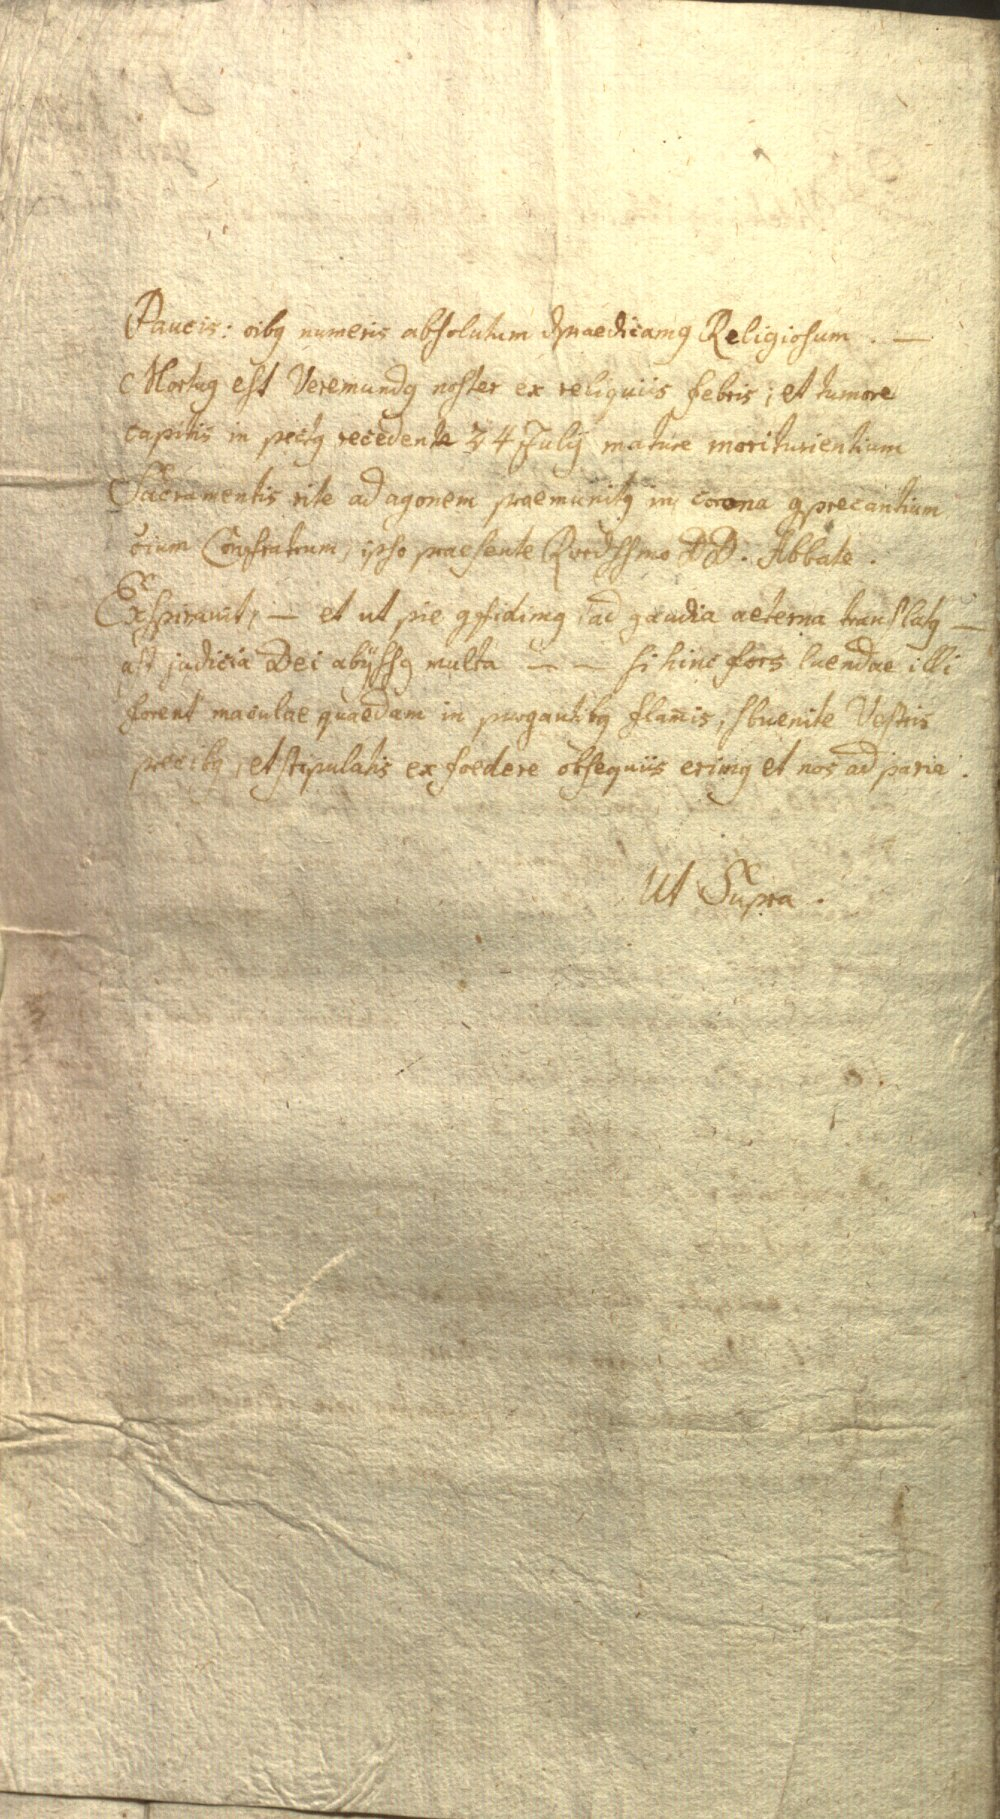 Paucis: oibꝯ numeris absolutum dpraedicamꝯ Religiosum. —
Mortuꝯ est Veremundꝯ noster ex reliquiis febris; et tumore
capitis in pectꝯ recedente 24 Julij mature moriturientium
Sacramentis rite ad agonem praemunitꝯ in corona ꝯprecantium
oium Confratrum, ipso praesente Rvrdssmo DD. Abbate.
Exspiravit, — et ut pie ꝯfidimꝯ, ad gaudia aeterna translatꝯ —
ast judicia Dei abÿssꝯ multa — — si hinc fors luendae illi
forent maculae quaedam in purgantibꝯ flam̄is, sbvenite Vestris
precibꝯ, et stipulatis ex foedere obsequiis erimꝯ et nos ad paria.
Ut Supra.